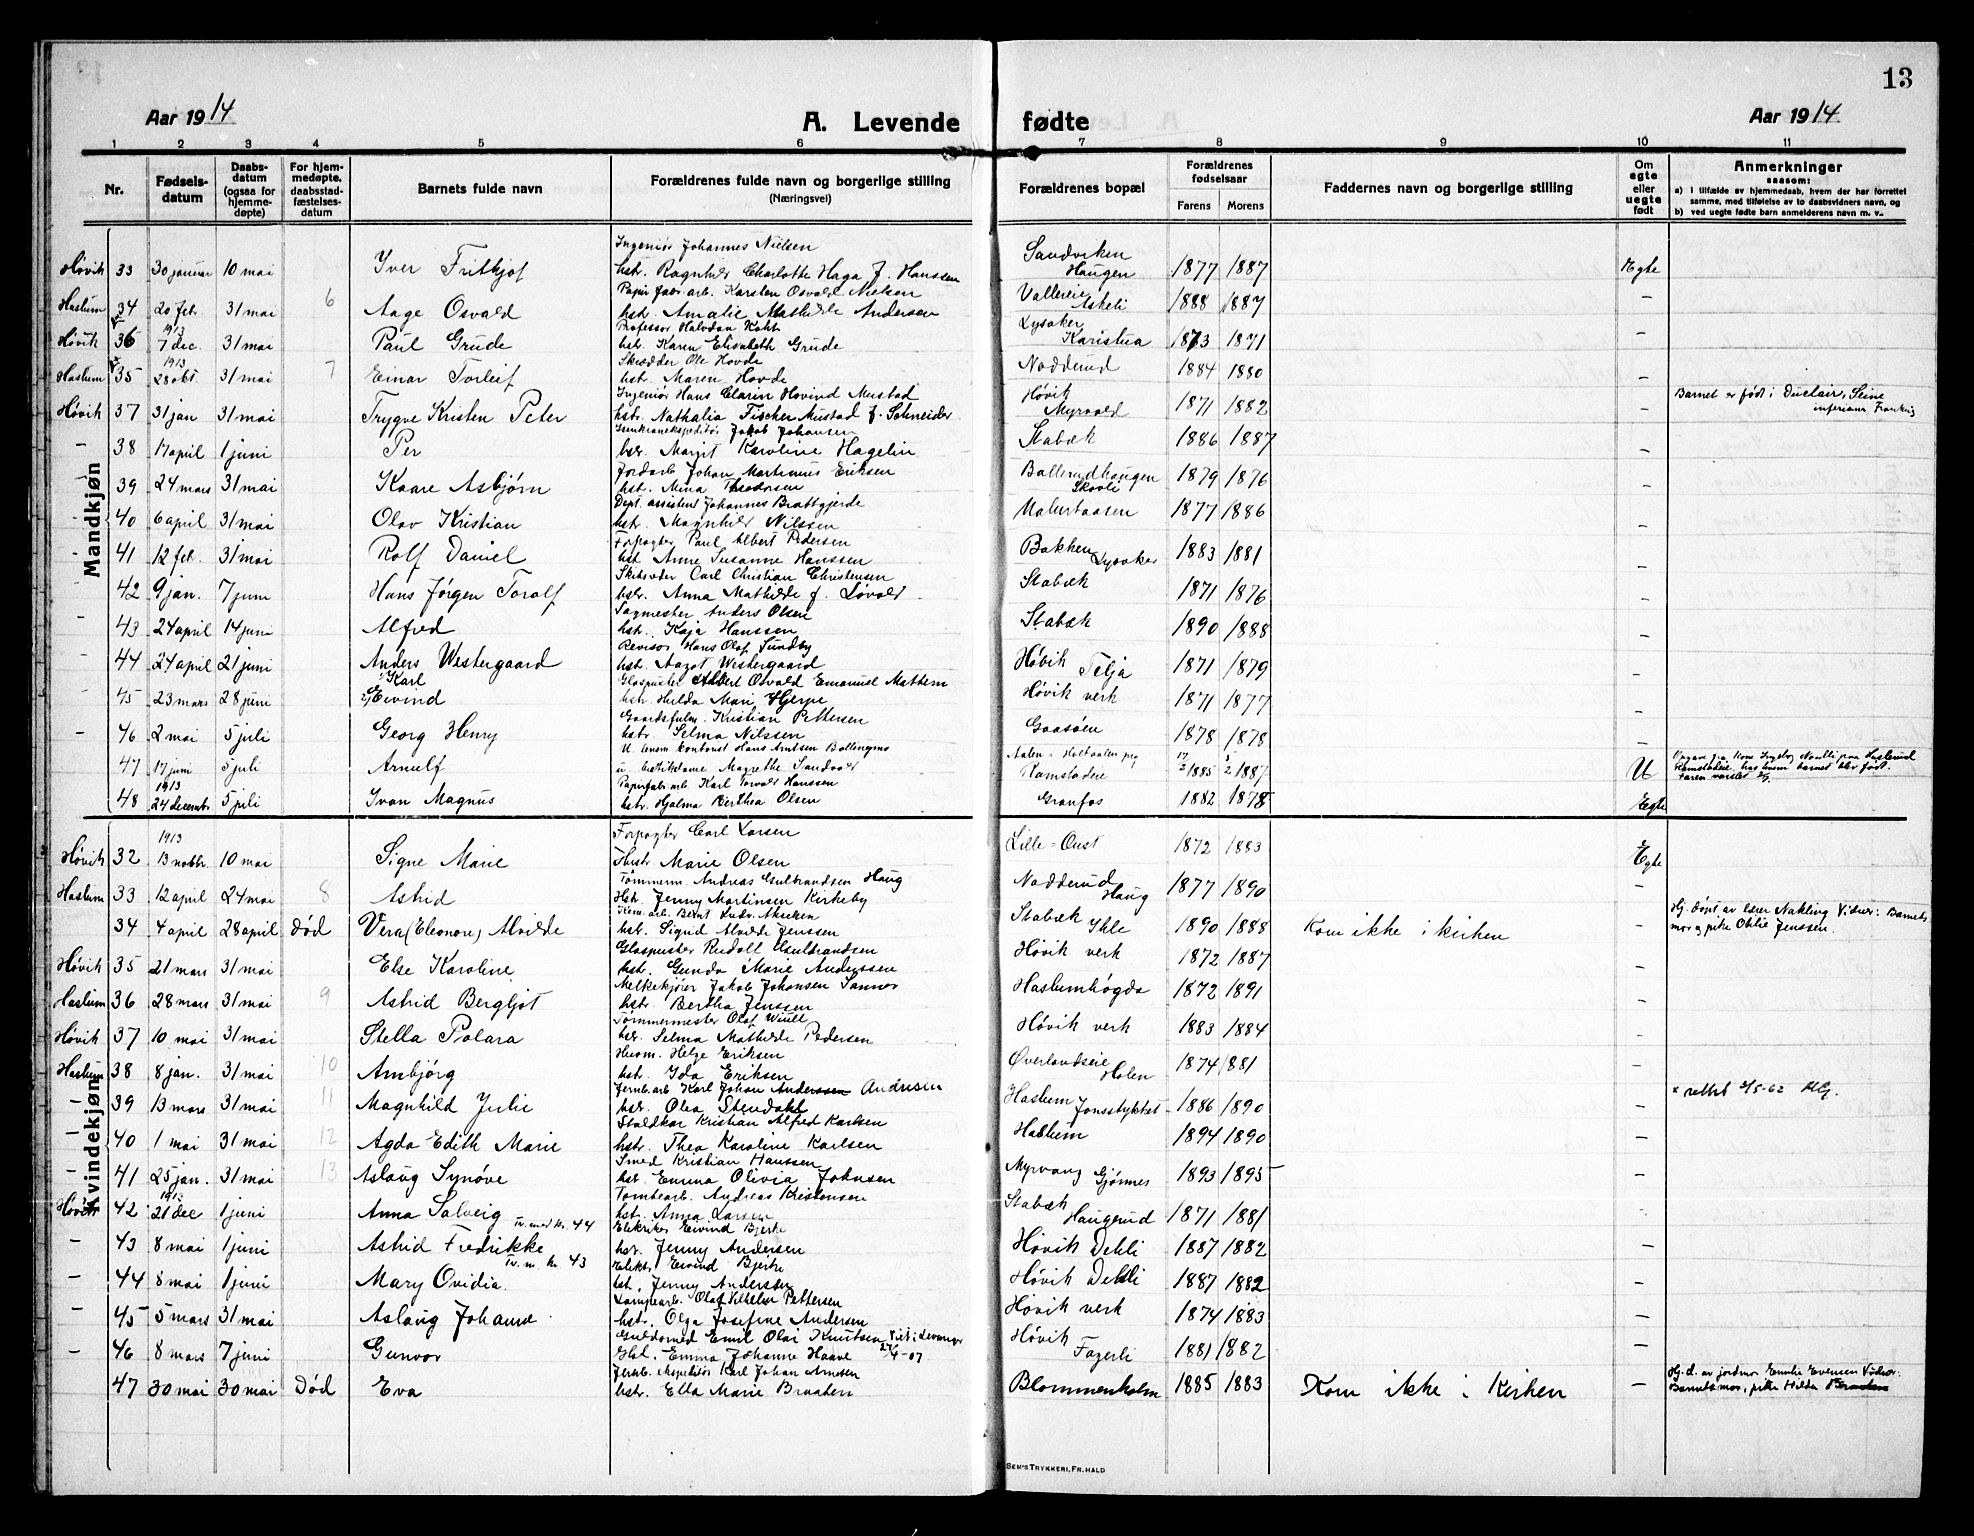 13
Aar 1914
A. Levende fødte
Aar 1914
1 2 3 4 5 6 7 8 9 10 11
Nr.
Fødselsdatum
Daabsdatum (ogsaa for hjemmedøpte)
For hjemmedøpte, daabsstadfæstelsesdatum
Barnets fulde navn
Forældrenes fulde navn og borgerlige stilling (Næringsvei)
Forældrenes bopæl
Forældrenes fødselsaar
Farens Morens
Faddernes navn og borgerlige stilling
Om egte eller uegte født
Anmerkninger
saasom:
a) i tilfælde av hjemmedaab, hvem der har forrettet samme, med tilføielse av to daabsvidners navn, og
b) ved uegte fødte barn anmelderens navn m. v.
Mandkjøn
Ingeniør Johannes Nielsen
Høvik 33 30 januar 10 mai Iver Fritkjof hstr. Ragnhild Charlotte Haga f. Hanssen Sandviken Haugen 1877 1887 Egte
Papir fabr. arb. Karsten Osvald Nielsen
Haslum 34 20 feb. 31 mai 6 Aage Osvald hstr. Amalie Mathilde Andersen Vallereie Askeli 1888 1887 –
Professor Halvdan Koht
Høvik 36 1913 7 dec. 31 mai Paul Grude hstr. Karen Elisabeth Grude Lysaker Karistua 1873 1871 –
Skrædder Ole Hovde
Haslum 35 1913 28 okt. 31 mai 7 Einar Torleif hst. Maren Hovde Nadderud 1884 1880 –
Ingeniør Hans Clarin Hovind Mustad
Høvik 37 31 jan 31 mai Trygve Kristen Peter hstr. Nathalia Fischer Mustad f. Schneider Høvik Myrvold 1871 1882 – Barnet er født i Duclair, Seine
Jakob Johansen
– 38 17 april 1 juni Per hstr. Margit Karoline Hagelin Stabæk 1886 1887 –
Jordarb Johan Martinius Eriksen
– 39 24 mars 31 mai Kaare Asbjørn hst. Mina Theodorsen Ballerudhaugen Skovli 1879 1876 –
Dept. assistent Johannes Brattgjerde
– 40 6 april 31 mai Olav Kristian hst. Magnhild Nilssen 1877 1886 –
Forpagter Paul Albert Pedersen
– 41 12 feb. 31 mai Rolf Daniel hst Anne Susanne Hanssen Bakken Lysaker 1883 1881 –
Carl Christian Christensen
– 42 9 jan. 7 juni Hans Jørgen Toralf hstr. Anna Mathilde f. Løvold Stabæk 1871 1876 –
Sagmester Anders Olsen
– 43 24 april 14 juni Alfred hst. Kaja Hanssen Stabæk 1890 1888 –
Revisor Hans Olaf Sundby
– 44 24 april 21 juni Anders Westergaard hst. Aagot Westergaard Høvik Telja 1871 1879 –
Karl Glaspuster Albert Osvald Emanuel Mathem
– 45 23 mars 28 juni Eivind hstr Hulda Mari Hjerpe Høvik verk 1871 1877 –
Gaardsfulm. Kristian Pettersen
– 46 2 mai 5 juli Georg Henry hstr. Selma Nilssen Gaasøen 1878 1878 –
47 17 juni 5 juli Arnulf Magrethe Sandvold Ramstadeie 1885 1887 U
Papirfabr. arb Karl Torvald Hanssen
48 1913 24 decembr. 5 juli Ivan Magnus hstr. Hjalma Berthea Olsen Granfos 1882 1878 Egte
Kvindekjøn
Forpagter Carl Larsen
Høvik 32 1913 13 novbr. 10 mai Signe Marie Hustr Marie Olsen Lille-Oust 1872 1883 Egte
Tømmerm. Andreas Gulbrandsen Haug
Haslum 33 12 april 24 mai 8 Astrid Hstr. Jenny Martinsen Kirkeby Nadderud Haug 1877 1890 –
34 4 april 28 april død Vera (Eleonore) Alvilde hst. Sigrid Alvilde Jenssen Stabæk Yhle 1890 1888 Kom ikke i kirken – Hj. døpt av lærer Nakling Vidner: Barnets mor og pike Othlie Jenssen.
Glaspuster Rudolf Gulbrandsen
Høvik 35 21 mars 31 mai Else Karoline hst. Gunda Marie Anderssen Høvik verk 1872 1887 –
Melkekjører Jakob Johansen Sannes
Haslum 36 28 mars 31 mai 9 Astrid Bergljot hstr. Bertha Jenssen Haslumhøgda 1872 1891 –
Tømmermester Olaf Wiull
Høvik 37 10 mai 31 mai Stella Polara hstr. Selma Mathilde Pedersen Høvik verk 1883 1884 –
Husm. Helge Eriksen
Haslum 38 8 jan. 31 mai 10 Ambjørg hst. Ida Eriksen Øverlandseie Holen 1874 1881 –
Jernb. arb Karl Johan Anderssen Andresen
– 39 13 mars 31 mai 11 Magnhild Julie hstr. Olea Stendahl Haslum Jonsstykket 1886 1890 – × rettet 2/5-62
Staldkar Kristian Alfred Karlsen
– 40 1 mai 31 mai 12 Agda Edith Marie hstr. Thea Karoline Karlsen Haslum 1894 1890 –
Smed Kristian Hanssen
– 41 25 jan. 31 mai 13 Aslaug Synøve hst. Emma Olivia Johnsen Myrvang Gjønnes 1893 1895 –
Tomtearb. Andreas Kristensen
Høvik 42 1913 21 dec 1 juni Anna Solveig hst. Anna Larsen Stabæk Haugerud 1871 1881 –
Tv. med nr. 44 Elektriker Eivind Bjerke
– 43 8 mai 1 juni Astrid Fredrikke hstr. Jenny Andersen Høvik Dehli 1887 1882 –
Tv. m. nr. 43 Elektr. Eivind Bjerke
– 44 8 mai 1 juni Mary Ovidia hst. Jenny Andersen Høvik Dehli 1887 1882 –
Lampearb. Olaf Vilhelm Pettersen
– 45 5 mars 31 mai Aslaug Johanne hstr. Olga Josefine Andersen Høvik verk 1874 1883 –
Guldsmed Emil Olai Knutsen Viet i Levanger
– 46 8 mars 7 juni Gunvor Hst. Emma Johanne Haave Høvik Fagerli 1881 1882 –
Jernb. ekspeditør Karl Johan Arntsen
47 30 mai 30 mai Død Eva hstr. Ella Marie Braaten Blommenholm 1885 1883 Kom ikke i Kirken – Hj. d. av jordmor Emilie Evensen Vidner: Barnets mor, pike Hilda Braaten
SEM'S TRYKKERI, FR. HALD